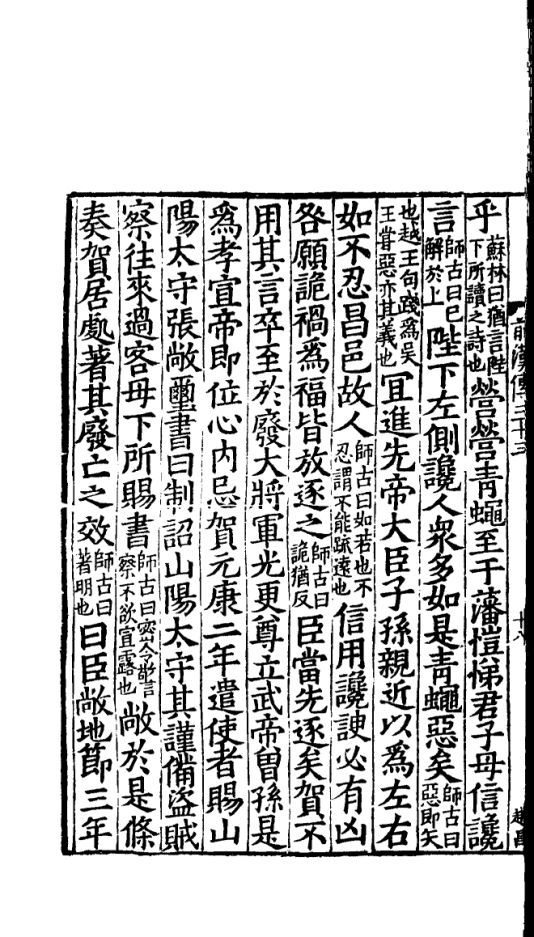 乎蘇林曰猶言陛下所讀之詩也營營青蠅至于藩愷悌君子毋信讒
言師古曰已解於上陛下左側讒人衆多如是青蠅惡矣師古曰惡即矢
也越王句踐爲吳王嘗惡亦其義也宜進先帝大臣子孫親近以爲左右
如不忍昌邑故人師古曰如若也不忍謂不能疏遠也信用讒諛必有凶
咎願詭禍爲福皆放逐之師古曰詭猶反臣當先逐矣賀不
用其言卒至於廢大將軍光更尊立武帝曾孫是
爲孝宣帝即位心內忌賀元康二年遣使者賜山
陽太守張敞璽書曰制詔山陽太守其謹備盜賊
察往來過客毋下所賜書師古曰密令警察不欲宣露也敞於是條
奏賀居處著其廢亡之效師古曰著明也曰臣敞地節三年